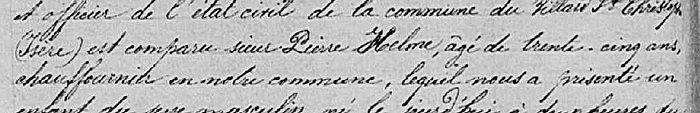 et officier de l'état civil de la commune du Villard St Christophe
(Isère) est comparu sieur Pierre Helme, âgé de trente-cinq ans,
chauffournier en notre commune, lequel nous a présenté un
enfant du sexe masculin né le jourd'hui à deux heures du